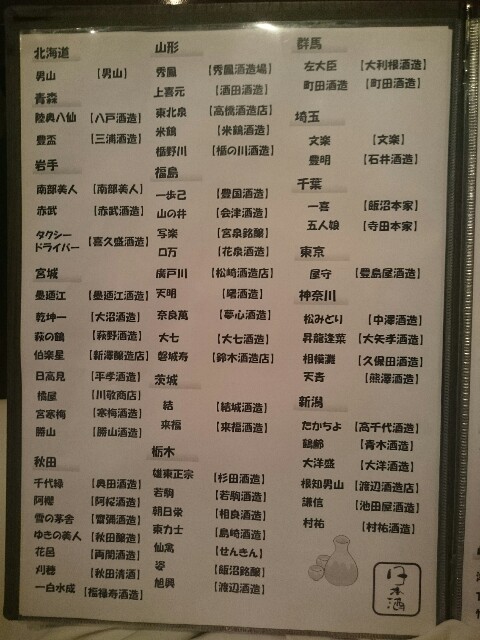 北海道
男山 【男山】
青森
陸奥八仙 【八戸酒造】
豊盃 【三浦酒造】
岩手
南部美人 【南部美人】
赤武 【赤武酒造】
タクシー
ドライバー 【喜久盛酒造】
宮城
墨廼江 【墨廼江酒造】
乾坤一 【大沼酒造】
萩の鶴 【萩野酒造】
伯楽星 【新澤醸造店】
日高見 【平孝酒造】
橘屋 【川敬商店】
宮寒梅 【寒梅酒造】
勝山 【勝山酒造】
秋田
千代緑 【奥田酒造】
阿櫻 【阿桜酒造】
雪の茅舎 【齋彌酒造】
ゆきの美人 【秋田醸造】
花邑 【両関酒造】
刈穂 【秋田清酒】
一白水成 【福禄寿酒造】
山形
秀鳳 【秀鳳酒造場】
上喜元 【酒田酒造】
東北泉 【高橋酒造店】
米鶴 【米鶴酒造】
楯野川 【楯の川酒造】
福島
一歩己 【豊国酒造】
山の井 【会津酒造】
写楽 【宮泉銘醸】
ロ万 【花泉酒造】
廣戸川 【松崎酒造店】
天明 【曙酒造】
奈良萬 【夢心酒造】
大七 【大七酒造】
磐城寿 【鈴木酒造店】
茨城
結 【結城酒造】
来福 【来福酒造】
栃木
雄東正宗 【杉田酒造】
若駒 【若駒酒造】
朝日栄 【相良酒造】
東力士 【島崎酒造】
仙禽 【せんきん】
姿 【飯沼銘醸】
旭興 【渡辺酒造】
群馬
左大臣 【大利根酒造】
町田酒造 【町田酒造】
埼玉
文楽 【文楽】
豊明 【石井酒造】
千葉
一喜 【飯沼本家】
五人娘 【寺田本家】
東京
屋守 【豊島屋酒造】
神奈川
松みどり 【中澤酒造】
昇龍蓬莱 【大矢孝酒造】
相模灘 【久保田酒造】
天青 【熊澤酒造】
新潟
たかちよ 【高千代酒造】
鶴齢 【青木酒造】
大洋盛 【大洋酒造】
根知男山 【渡辺酒造店】
謙信 【池田屋酒造】
村祐 【村祐酒造】
日本酒